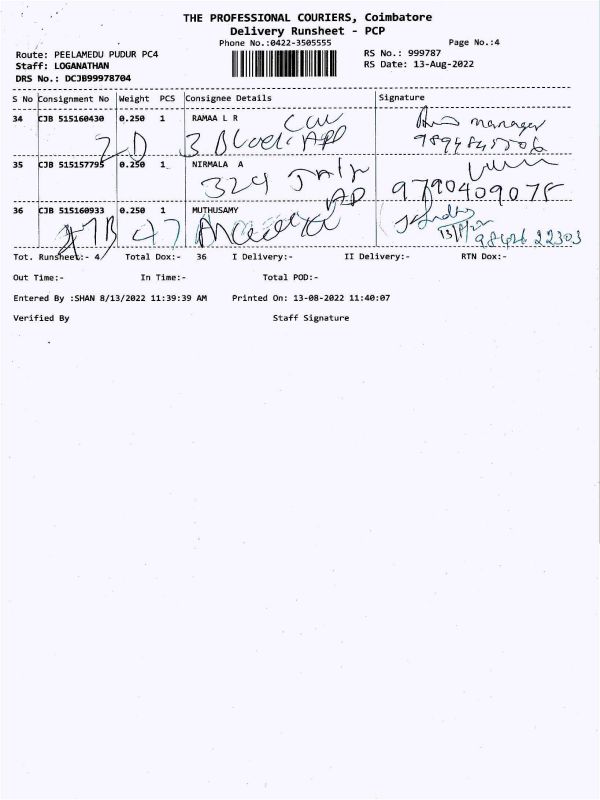 THE PROFESSIONAL COURIERS, Coimbatore
Delivery Runsheet - PCP
Phone No.:0422-3505555 Page No.:4
Route: PEELAMEDU PUDUR PC4 RS No.: 999787
Staff: LOGANATHAN RS Date: 13-Aug-2022
DRS No.: DCJB99978704
S No Consignment No Weight PCS Consignee Details Signature
34 CJB 515160430 0.250 1 RAMAA L R
manager
2D 3 Block
35 CJB 515157795 0.250 1 NIRMALA A
324
9790409075
36 CJB 515160933 0.250 1 MUTHUSAMY
47
98426 22303
Tot. Runsheet:- 4 Total Dox:- 36 I Delivery:- II Delivery:- RTN Dox:-
Out Time:- In Time:- Total POD:-
Entered By :SHAN 8/13/2022 11:39:39 AM Printed On: 13-08-2022 11:40:07
Verified By Staff Signature